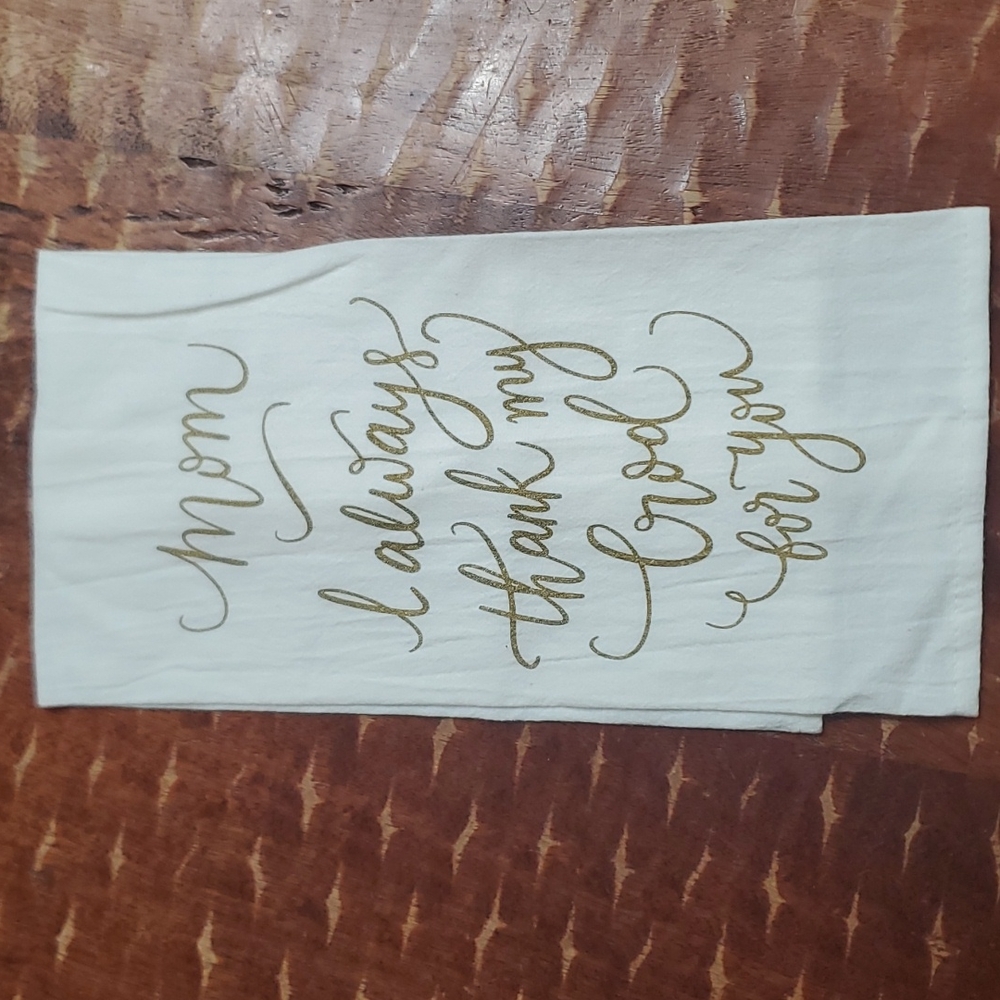 mom
I always
thank my
God
for you